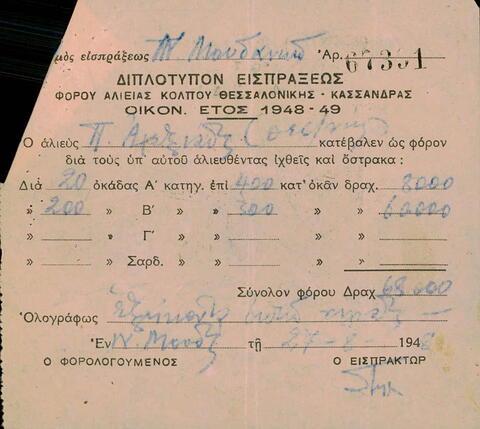 μὸς εἰσπράξεως Ν. Μουδανιῶν Ἀρ. 67391
ΔΙΠΛΟΤΥΠΟΝ ΕΙΣΠΡΑΞΕΩΣ
ΦΟΡΟΥ ΑΛΙΕΙΑΣ ΚΟΛΠΟΥ ΘΕΣΣΑΛΟΝΙΚΗΣ - ΚΑΣΣΑΝΔΡΑΣ
ΟΙΚΟΝ. ΕΤΟΣ 1948-49
Ὁ ἁλιεὺς Π. κατέβαλεν ὡς φόρον
διὰ τοὺς ὑπ' αὐτοῦ ἁλιευθέντας ἰχθεῖς καὶ ὄστρακα :
Διὰ 20 ὀκάδας Α' κατηγ. ἐπὶ 400 κατ' ὀκᾶν δραχ. 8000
» 200 » Β' » 300 » » 60000
» » Γ' » » »
» » Σαρδ. » » »
Σύνολον φόρου Δραχ 68000
Ὁλογράφως ἑξήκοντα ὀκτὼ
Ἐν Ν. Μουδ τῇ 27-8- 1948
Ο ΦΟΡΟΛΟΓΟΥΜΕΝΟΣ Ο ΕΙΣΠΡΑΚΤΩΡ